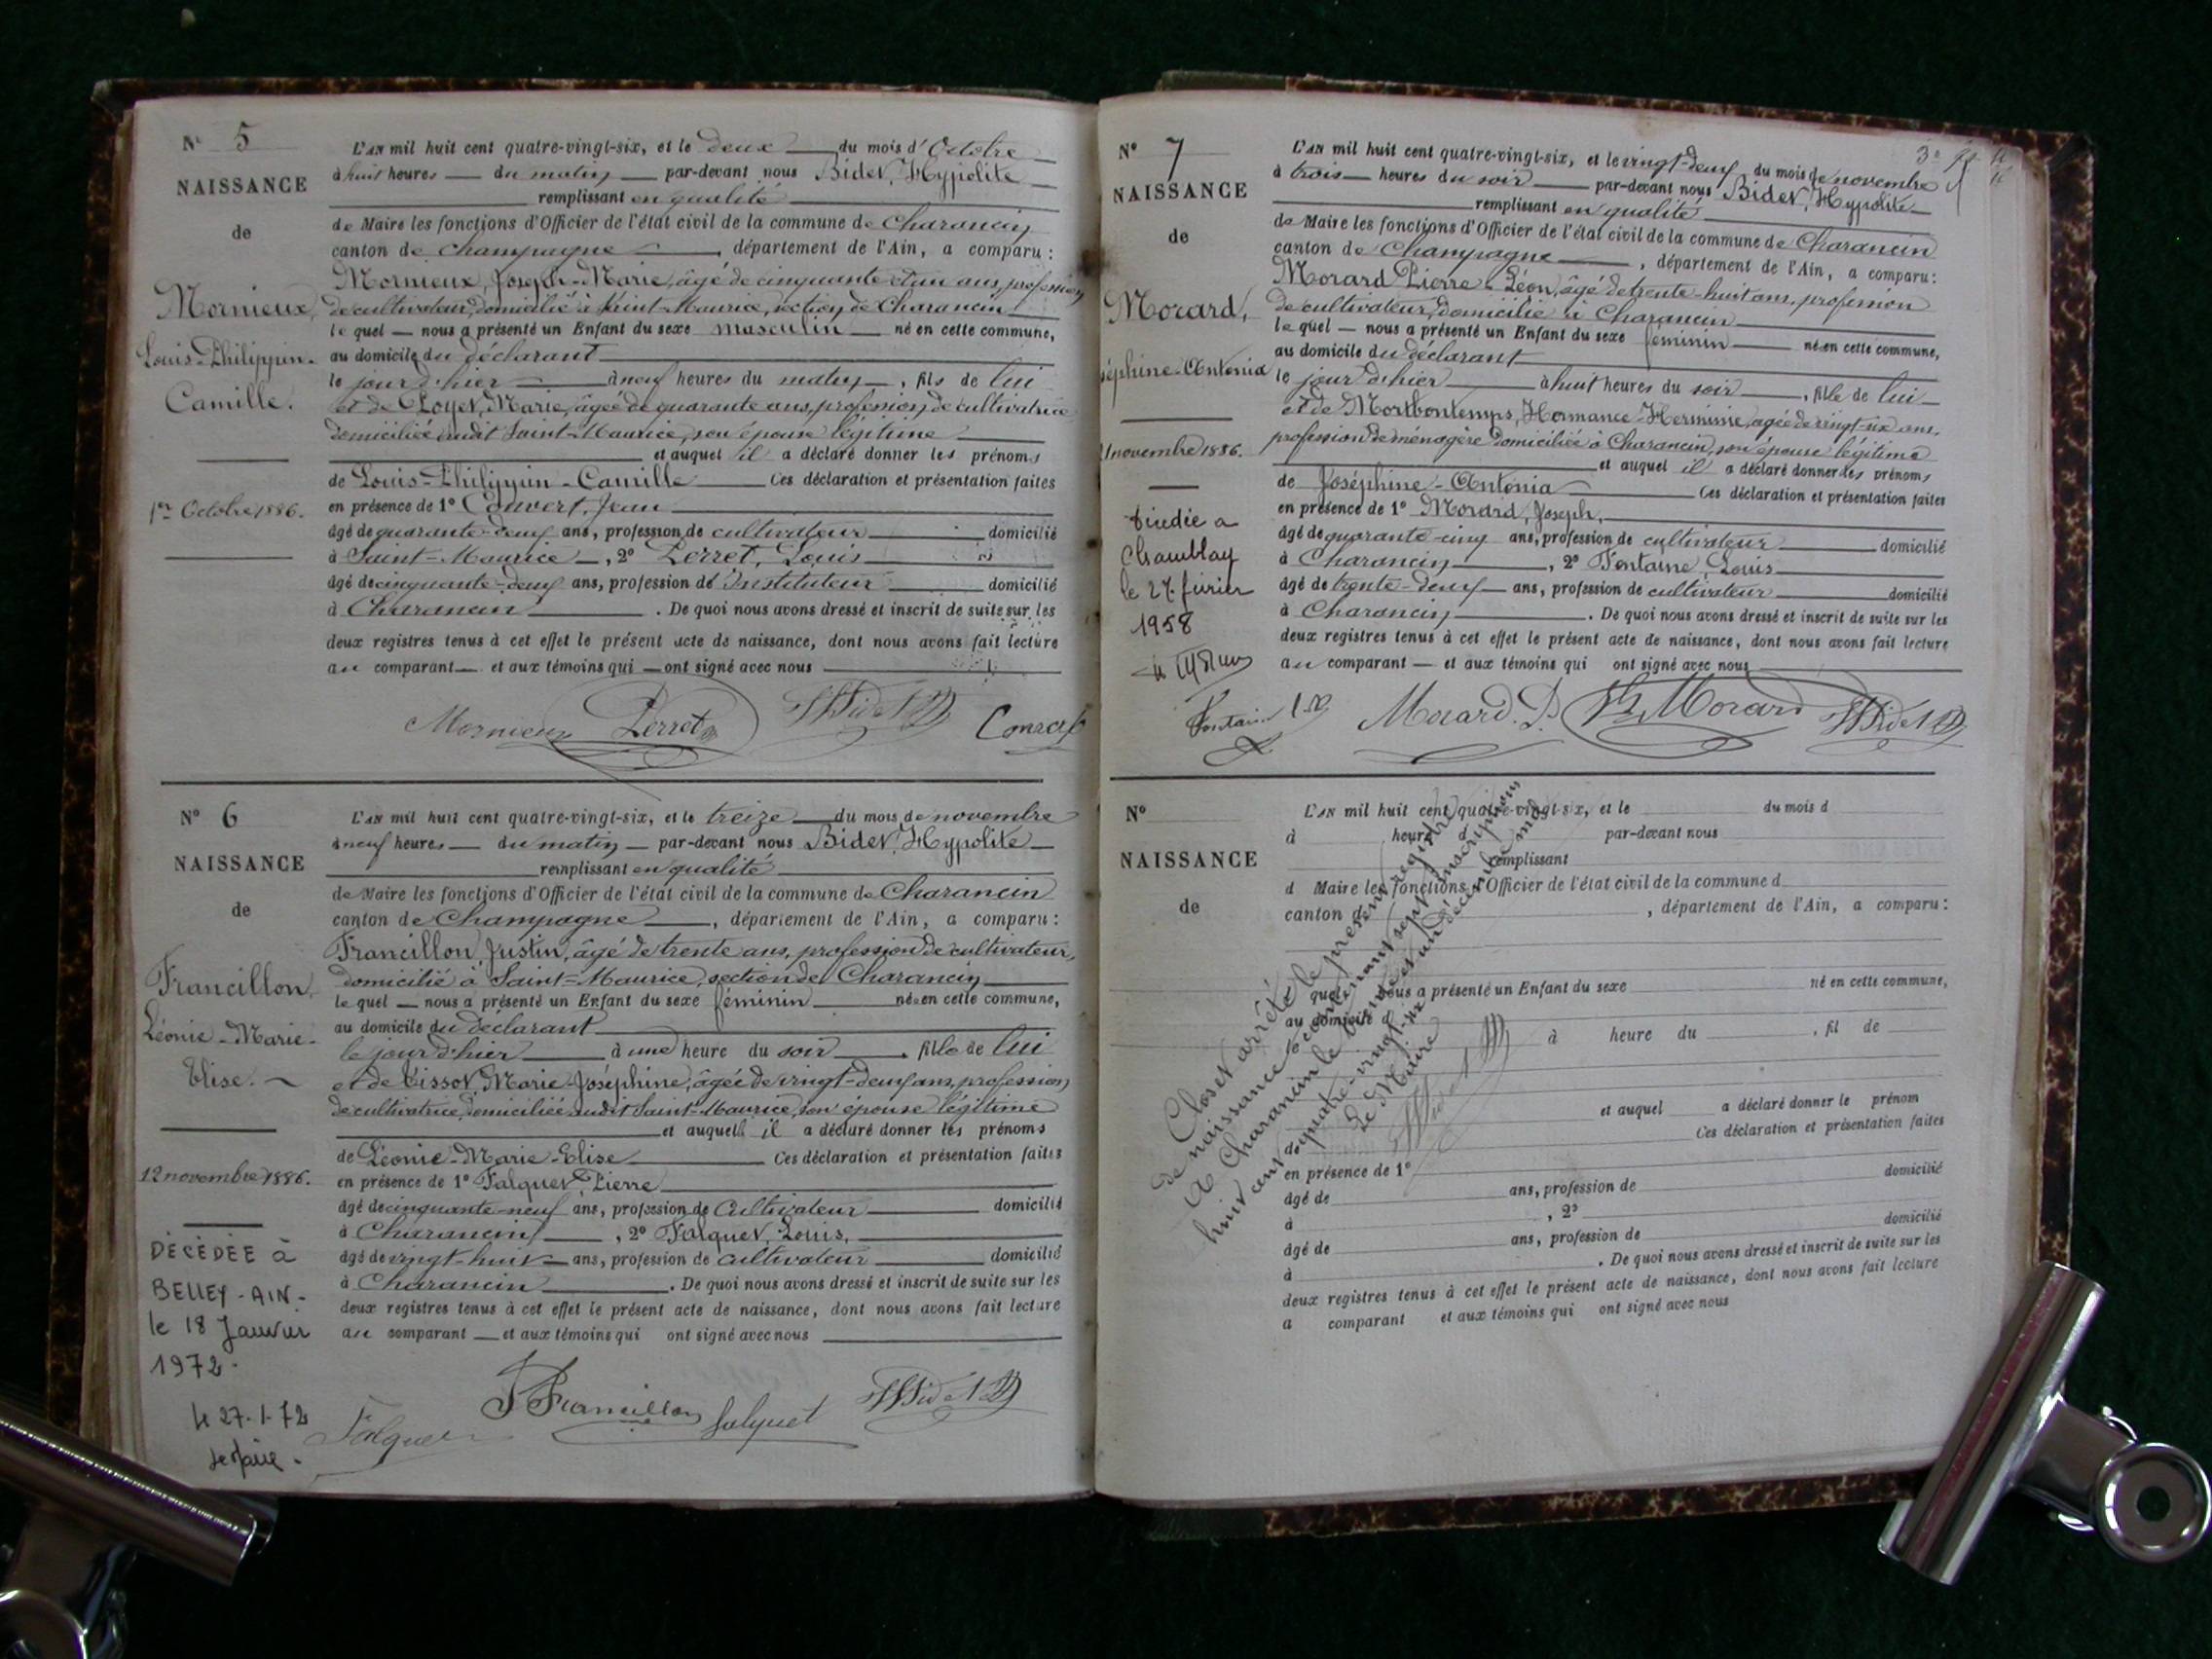 N° 5
NAISSANCE
de
Mornieux,
Louis-Philippin-
Camille.
1er Octobre 1886.
L'AN mil huit cent quatre-vingt-six, et le deux du mois d'Octobre
à huit heures du matin par-devant nous Bidet, Hypolite
remplissant en qualité
de Maire les fonctions d'Officier de l'état civil de la commune de Charancin
canton de Champagne, département de l'Ain, a comparu :
Mornieux, Joseph-Marie, âgé de cinquante et un ans, profession
de cultivateur, domicilié à Saint-Maurice, section de Charancin
lequel nous a présenté un Enfant du sexe masculin né en cette commune,
au domicile du déclarant
le jour d'hier à neuf heures du matin, fils de lui
et de Loyet, Marie, âgée de quarante ans, profession de cultivatrice
domiciliée audit Saint-Maurice, son épouse légitime
et auquel il a déclaré donner les prénoms
de Louis-Philippin-Camille Ces déclaration et présentation faites
en présence de 1° Convert, Jean
âgé de quarante-deux ans, profession de cultivateur domicilié
à Saint-Maurice, 2° Perret, Louis
âgé de cinquante-deux ans, profession de Instituteur domicilié
à Charancin. De quoi nous avons dressé et inscrit de suite sur les
deux registres tenus à cet effet le présent acte de naissance, dont nous avons fait lecture
au comparant et aux témoins qui ont signé avec nous
Mornieux Perret H Bidet Convert
N° 6
NAISSANCE
de
Francillon,
Léonie-Marie-
Elise.
12 novembre 1886.
DÉCÉDÉE à
BELLEY-AIN-
le 18 Janvier
1972.
le 27.1.72
le Maire.
L'AN mil huit cent quatre-vingt-six, et le treize du mois de novembre
à neuf heures du matin par-devant nous Bidet, Hypolite
remplissant en qualité
de Maire les fonctions d'Officier de l'état civil de la commune de Charancin
canton de Champagne, département de l'Ain, a comparu :
Francillon, Justin, âgé de trente ans, profession de cultivateur,
domicilié à Saint-Maurice, section de Charancin
lequel nous a présenté un Enfant du sexe féminin née en cette commune,
au domicile du déclarant
le jour d'hier à une heure du soir, fille de lui
et de Tissot, Marie-Joséphine, âgée de vingt-deux ans, profession
de cultivatrice, domiciliée audit Saint-Maurice, son épouse légitime
et auquel il a déclaré donner les prénoms
de Léonie-Marie-Elise Ces déclaration et présentation faites
en présence de 1° Falquet, Pierre
âgé de cinquante-neuf ans, profession de Cultivateur domicilié
à Charancin, 2° Falquet, Louis,
âgé de vingt-huit ans, profession de cultivateur domicilié
à Charancin. De quoi nous avons dressé et inscrit de suite sur les
deux registres tenus à cet effet le présent acte de naissance, dont nous avons fait lecture
au comparant et aux témoins qui ont signé avec nous
Falquet J Francillon falquet H Bidet
N° 7
NAISSANCE
de
Morard,
séphine-Antonia
novembre 1886.
Décédée a
Chamblay
le 27 février
1958
L'AN mil huit cent quatre-vingt-six, et le vingt-deux du mois de novembre
à trois heures du soir par-devant nous Bidet, Hypolite
remplissant en qualité
de Maire les fonctions d'Officier de l'état civil de la commune de Charancin
canton de Champagne, département de l'Ain, a comparu :
Morard Pierre-Léon, âgé de trente-huit ans, profession
de cultivateur, domicilié à Charancin
lequel nous a présenté un Enfant du sexe féminin née en cette commune,
au domicile du déclarant
le jour d'hier à huit heures du soir, fille de lui
et de Montbontemps, Hermance-Herminie, âgée de vingt-six ans,
profession de ménagère domiciliée à Charancin, son épouse légitime
et auquel il a déclaré donner les prénoms
de Joséphine-Antonia Ces déclaration et présentation faites
en présence de 1° Morard, Joseph,
âgé de quarante-cinq ans, profession de cultivateur domicilié
à Charancin, 2° Fontaine, Louis
âgé de trente-deux ans, profession de cultivateur domicilié
à Charancin. De quoi nous avons dressé et inscrit de suite sur les
deux registres tenus à cet effet le présent acte de naissance, dont nous avons fait lecture
au comparant et aux témoins qui ont signé avec nous
Fontaine Morard. P Morard H Bidet
N°
NAISSANCE
de
L'AN mil huit cent quatre-vingt-six, et le du mois d
à heure d par-devant nous
remplissant
d Maire les fonctions d'Officier de l'état civil de la commune d
canton d , département de l'Ain, a comparu :
quel nous a présenté un Enfant du sexe né en cette commune,
au domicile d
le à heure du , fil de
et auquel a déclaré donner le prénom
de Ces déclaration et présentation faites
en présence de 1°
âgé de ans, profession de domicilié
à , 2°
âgé de ans, profession de domicilié
à . De quoi nous avons dressé et inscrit de suite sur les
deux registres tenus à cet effet le présent acte de naissance, dont nous avons fait lecture
a comparant et aux témoins qui ont signé avec nous
Clos et arrêté le présent registre
de naissance contenant sept inscriptions
A Charancin le trente et un décembre mil
huit cent quatre-vingt-six
Le Maire
H Bidet